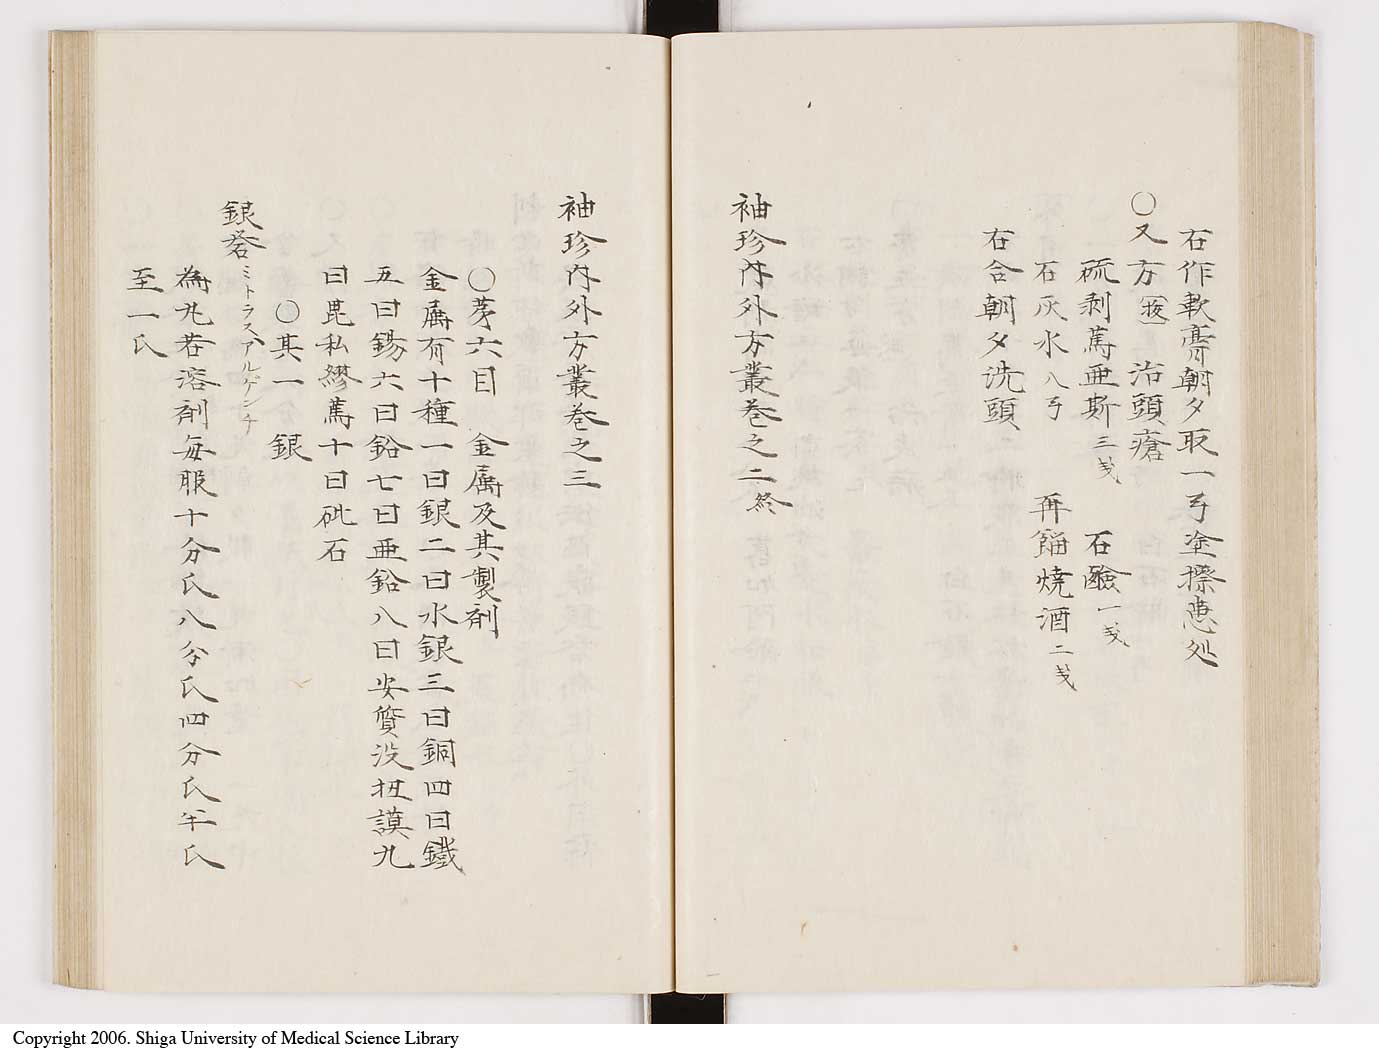 右作軟膏朝夕取一弓塗擦患处
〇又方 治頭瘡
硫剥篤亜斯三戔 石鹸一戔
石灰水八弓 再餾焼酒二戔
右合朝夕洗頭
袖珍内外方叢巻之二終
袖珍内外方叢巻之三
〇苐六目 金属及其製剤
金属有十種一曰銀二曰水銀三曰銅四曰鐵
五曰錫六曰鉛七曰亜鉛八曰安質没扭謨九
曰毘私繆篤十曰砒石
〇其一 銀
銀硧ミトラスアルゲンチ
為丸若溶剤毎服十分氏八分氏四分氏半氏
至一氏
Copyright 2006. Shiga University of Medical Science Library